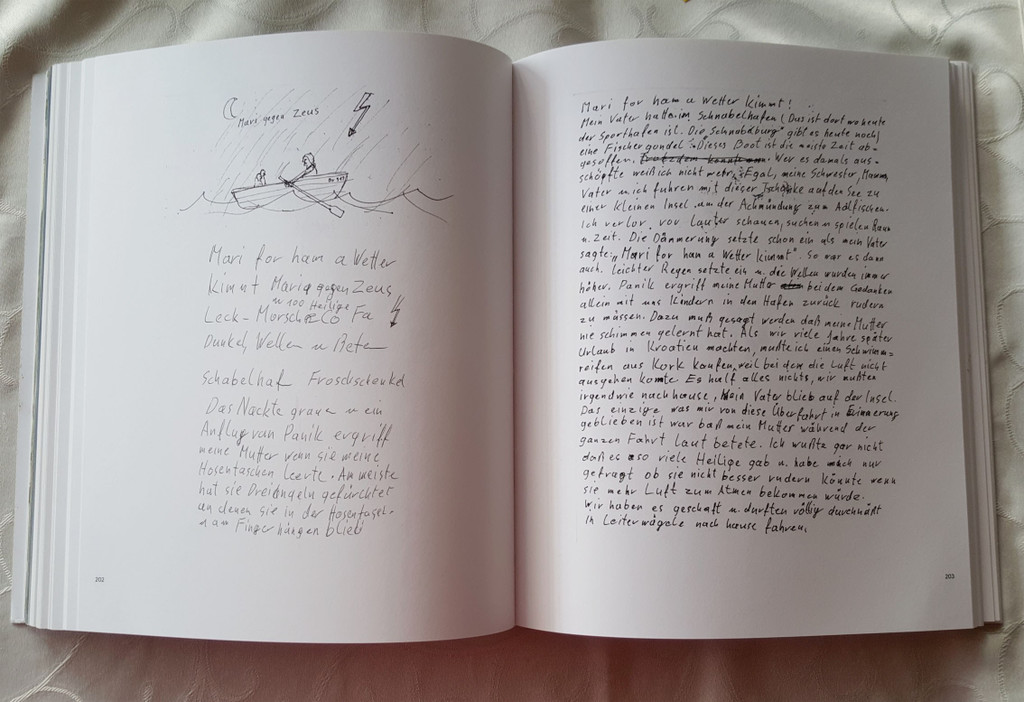 Mari gegen Zeus
Mari for ham a Wetter
kimmt Maria gegen Zeus
u 100 Heilige
Leck-Morsch Co Fa
Dunkel, Wellen u Beten
Schabelhaf Froschschenkel
Das Nackte graun u ein
Anflug von Panik ergriff
meine Mutter wenn sie meine
Hosentaschen leerte. Am meiste
hat sie Dreiangeln gefürchtet
an denen sie in der Hosentasch-
am Finger hängen blieb
202
Mari for ham a Wetter kimmt!
Mein Vater hatte im Schnabelhafen (Das ist dort wo heute
der Sporthafen ist. Die Schnabelburg gibt es heute noch)
eine Fischergondel. Dieses Boot ist die meiste Zeit ab-
gesoffen. Trotzdem konnte man. Wer es damals aus-
schöpfte weiß ich nicht mehr. Egal, meine Schwester, Mama,
Vater u ich fuhren mit dieser Tschinke auf den See zu
einer kleinen Insel an der Achmündung zum Aalfischen.
Ich verlor vor lauter schauen, suchen u spielen Raum
u. Zeit. Die Dämmerung setzte schon ein als mein Vater
sagte: "Mari for ham a Wetter kimmt". So war es dann
auch. Leichter Regen setzte ein u. die Wellen wurden immer
höher. Panik ergriff meine Mutter bei dem Gedanken
allein mit uns Kindern in den Hafen zurück rudern
zu müssen. Dazu muß gesagt werden daß meine Mutter
nie schimmen gelernt hat. Als wir viele Jahre später
Urlaub in Kroatien machten, mußte ich einen Schwimm-
reifen aus Kork kaufen, weil bei dem die Luft nicht
ausgehen konte. Es half alles nichts, wir mußten
irgendwie nach hause, Mein Vater blieb auf der Insel.
Das einzige was mir von diese Überfahrt in Erinnerung
geblieben ist war daß mein Mutter während der
ganzen Fahrt laut betete. Ich wußte gar nicht
daß es so viele Heilige gab u. habe mich nur
gefragt ob sie nicht besser rudern könnte wenn
sie mehr Luft zum Atmen bekommen würde.
Wir haben es geschaft u. durften völlig durchnäßt
in Leiterwägele nach hause fahren.
203